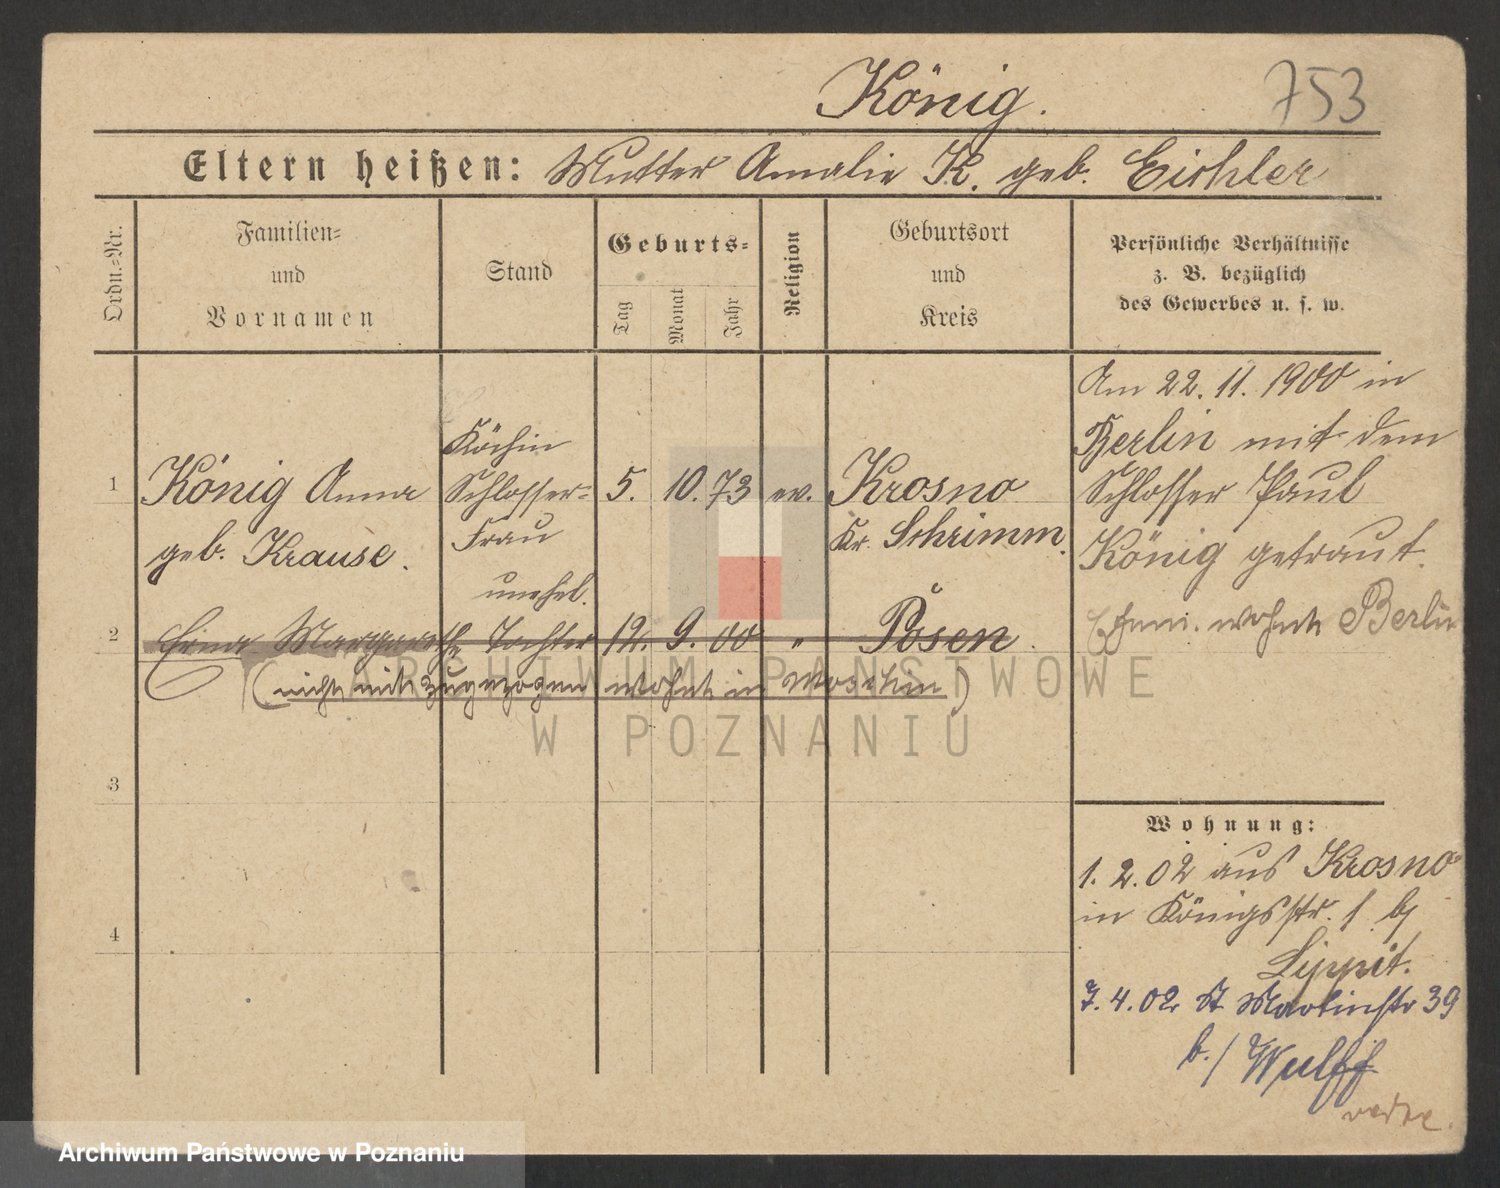 König.
753
Eltern heißen: Mutter Amalie K. geb. Eichler
Ordn.=Nr.
Familien=
und
Vornamen
Stand
Geburts=
Tag
Monat
Jahr
Religion
Geburtsort
und
Kreis
Persönliche Verhältnisse
z. B. bezüglich
des Gewerbes u. s. w.
1
König Anna
geb. Krause.
Köchin
Schlosser=
Frau
5. 10. 73 ev.
Krosno
Kr. Schrimm.
Am 22. 11. 1900 in
Berlin mit dem
Schlosser Paul
König getraut.
wohnt Berlin
unehel.
2
Erna Margarethe Tochter 12. 9. 00 " Posen.
(nicht mit zugezogen wohnt in
3
4
Wohnung:
1. 2. 02 aus Krosno
in Königsstr. 1 b/
Lippit.
7. 4. 02 St Martinstr 39
b./ Wulff
ARCHIWUM PAŃSTWOWE
W POZNANIU
Archiwum Państwowe w Poznaniu